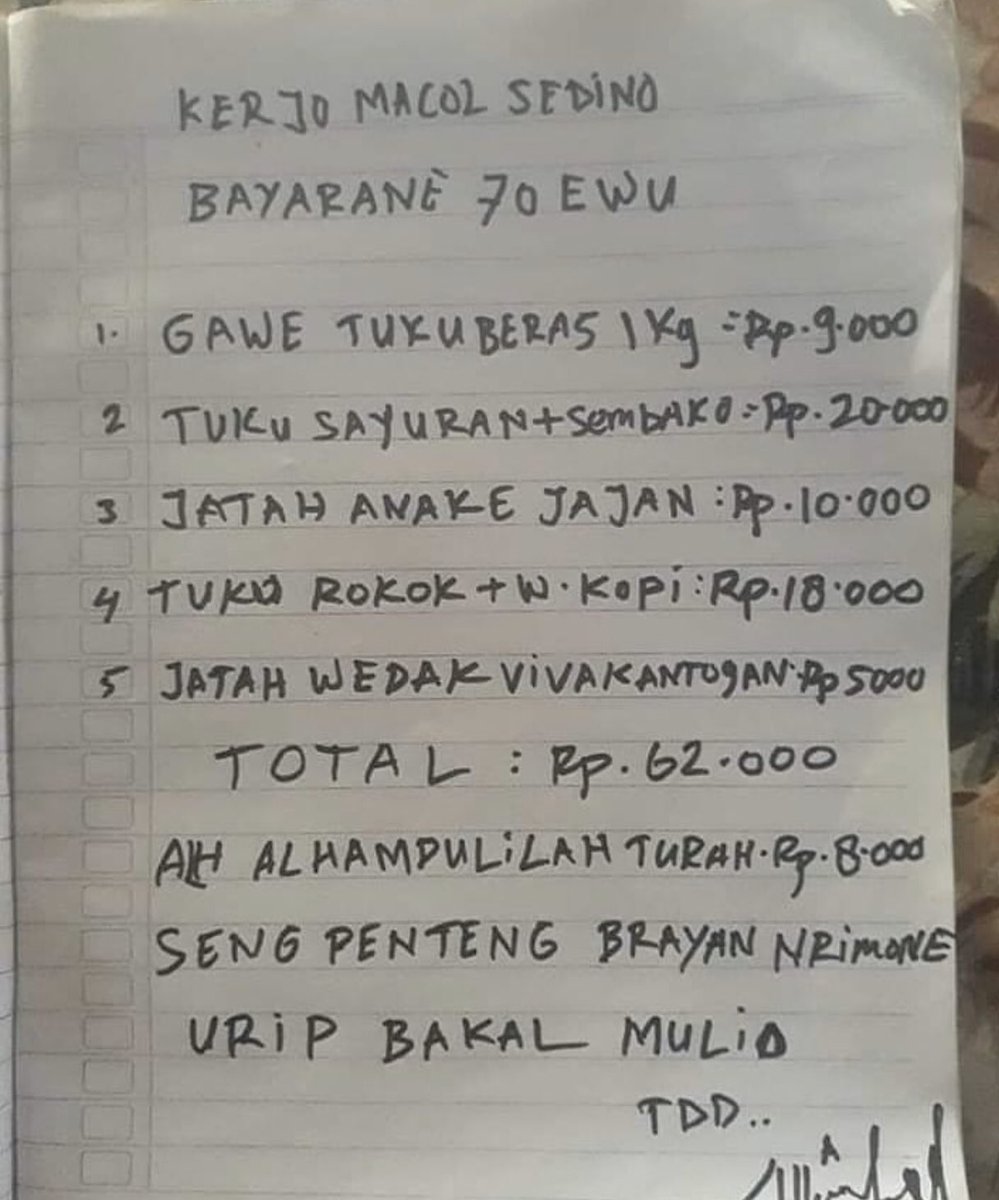 KERJO MACOL SEDINO
BAYARANÈ 70 EWU
1. GAWE TUKU BERAS 1 Kg = Rp. 9.000
2 TUKU SAYURAN + SemBAKO = Rp. 20.000
3 JATAH ANAKE JAJAN : Rp. 10.000
4 TUKU ROKOK + W. KOPi : Rp. 18.000
5 JATAH WEDAK ViVA KANTOgAN. Rp 5000
TOTAL : Rp. 62.000
ALHAMPULiLAH TURAH. Rp. 8.000
SENG PENTENG BRAYAN NRimONE
URiP BAKAL MULiO
TDD..